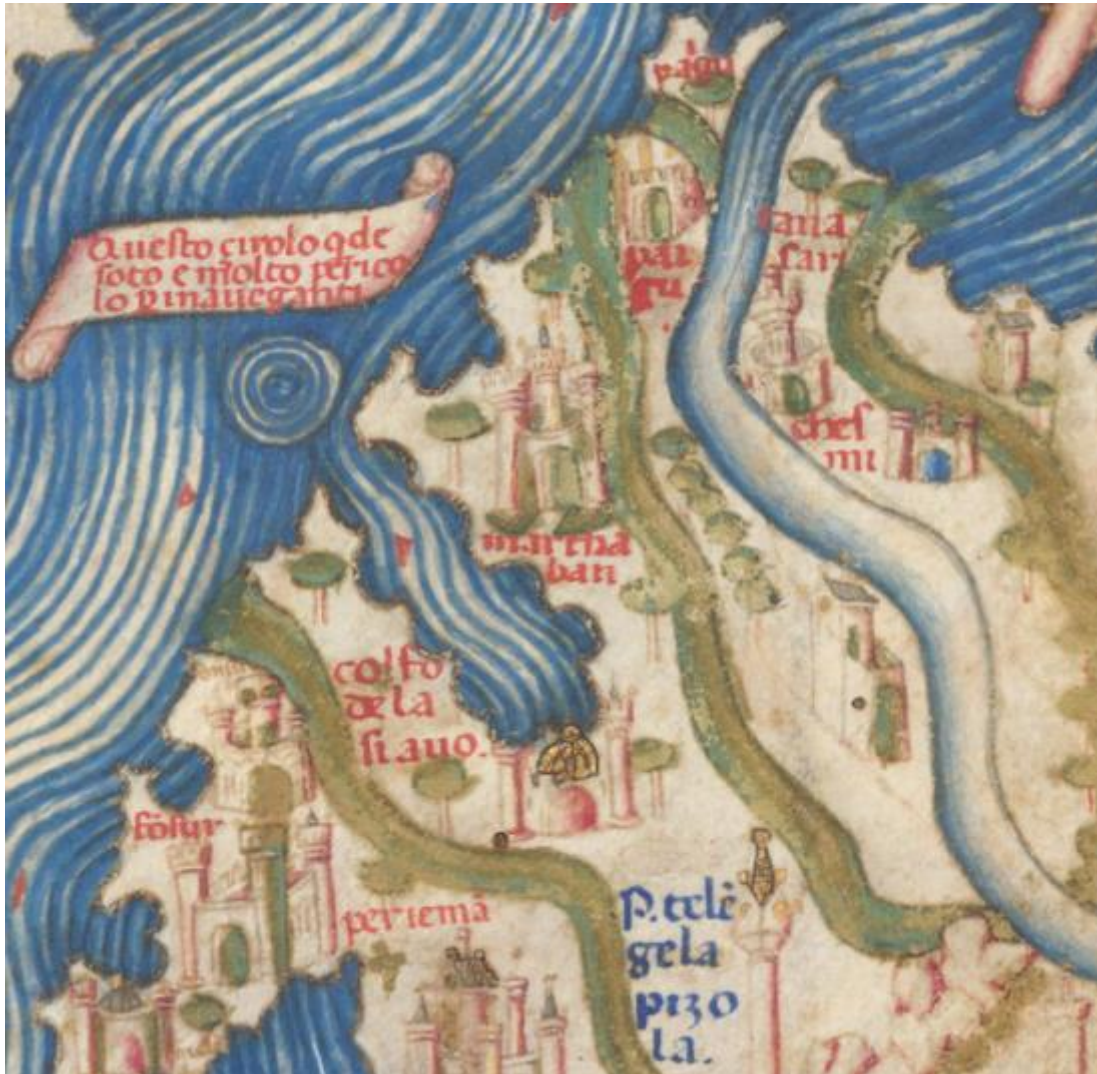 pagu
Questo cirolo qde
soto e molto perico
lo p i naveganti
pai
gu
tana
sari
ches
mi
martha
ban
colfo
de la
si avo.
fosur
periemā
P. telē
gela
pizo
la.